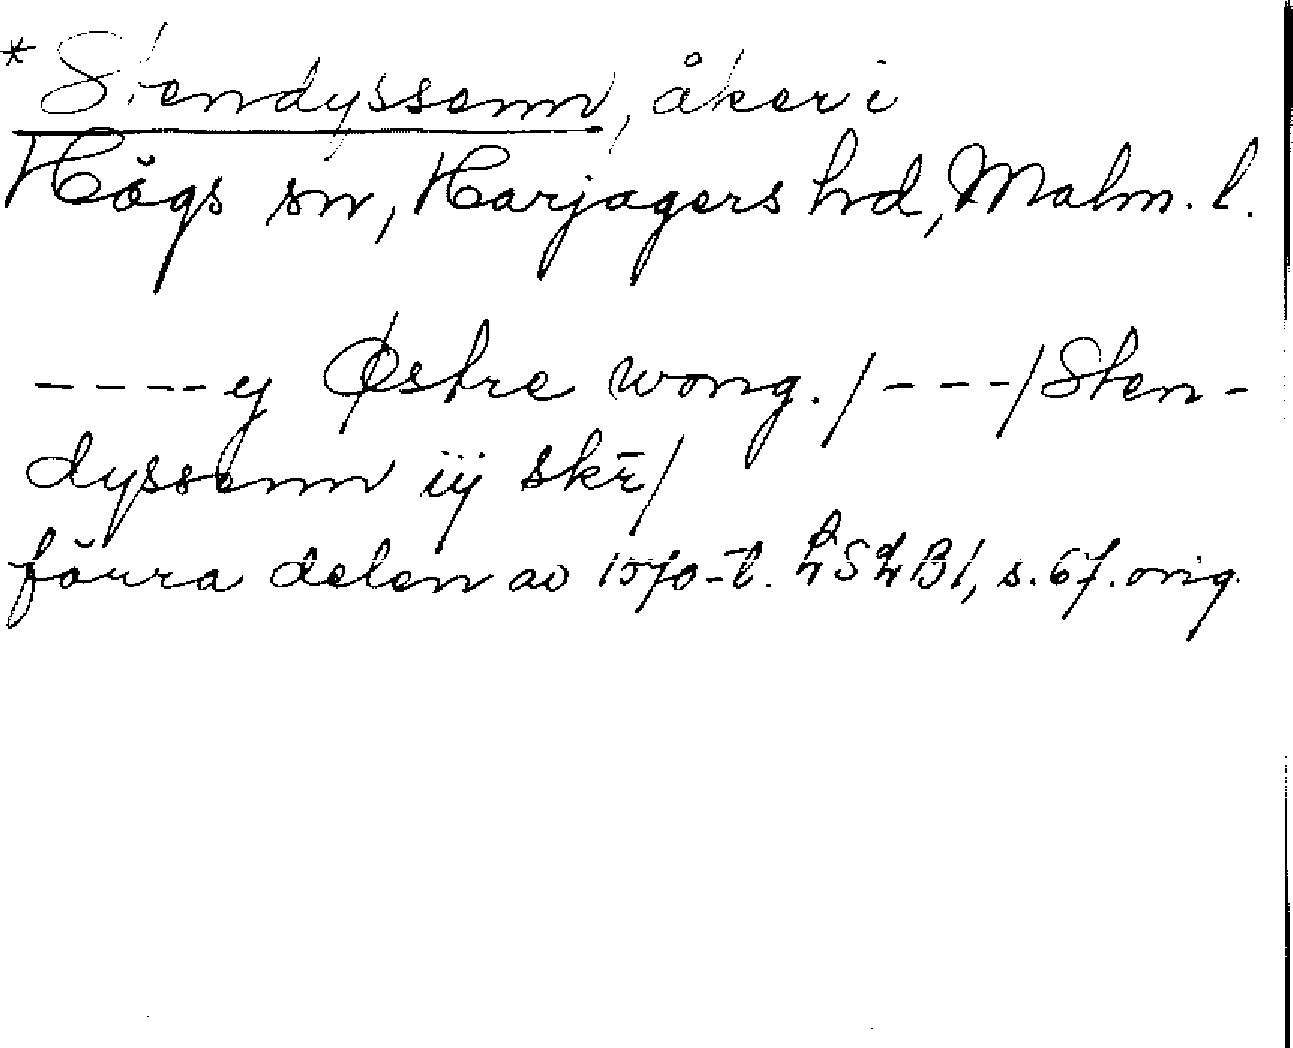 * Stendyssenn, åker i
Högs sn, Harjagers hd, Malm. l.
----ÿ Østre wong. /---/ Sten-
dyssenn iij skē/
förra delen av 1570-t. s. 67. orig.